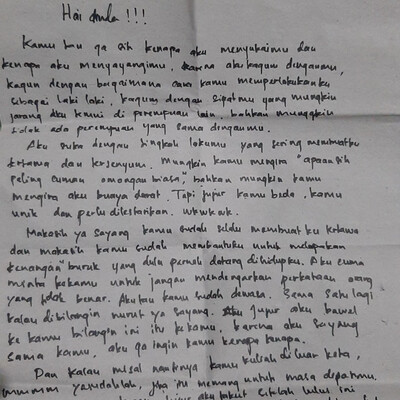 Hai anda !!!
Kamu tau ga sih kenapa aku menyukaimu dan
kenapa aku menyayangimu. karena aku kagum denganmu,
kagum dengan bagaimana cara kamu memperlakukanku
sebagai laki laki. kagum dengan sipatmu yang mungkin
jarang aku temui di perempuan lain. bahkan mungkin
tidak ada perempuan yang sama denganmu.
Aku suka dengan tingkah lakumu yang sering membuatku
ketawa dan tersenyum. Mungkin kamu mengira "apaansih
paling cuman omongan biasa", bahkan mungkin kamu
mengira aku buaya darat. Tapi jujur kamu beda. kamu
unik dan perlu dilestarikan. wkwkwk.
Makasih ya sayang kamu sudah selalu membuatku ketawa
dan makasih kamu sudah membantuku untuk melupakan
kenangan" buruk yang dulu pernah datang dihidupku. Aku cuma
minta kekamu untuk jangan mendengarkan perkataan orang
yang tidak benar. Aku tau kamu sudah dewasa. Sama satu lagi
kalau dibilangin nurut ya sayang. Aku jujur aku bawel
ke kamu bilangin ini itu kekamu, karena aku sayang
sama kamu, aku ga ingin kamu kenapa kenapa.
Dan kalau misal nantinya kamu kuliah diluar kota,
yaudahlah, jika itu memang untuk masa depanmu.
aku takut setelah lulus ini